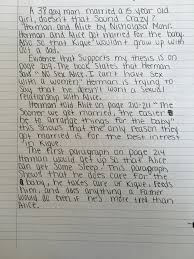 A 38 gay man married a 15 year old
girl, doesn't that sound crazy!
Herman and Alice by Nicholasa Mohr.
Herman and Alice got married for the baby.
Also so that Kique wouldn't grow up with
out a dad.
Evidence that supports my thesis is on
page 209. The book states that Herman
said "No sex Alice. I can't have sex
with a women". Herman is trying to
say that he doesn't want a sexual
relationship with Alice.
Herman also told Alice on page 210-211 "The
sooner we get married, the easier
to arrange things for the baby"
this shows that the only reason they
got married is for the best interest
in Kique.
The first paragraph on page 214
Herman would get up so that Alice
can get some sleep. This paragraph
shows that he does care for the
baby, he takes care of Kique, feeds
him, and does anything a father
would do even if he's more tired than
Alice.